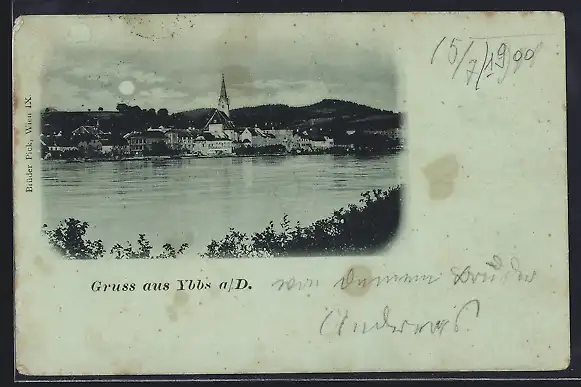 15/7/1900
Brüder Fick, Wien IX.
Gruss aus Ybbs a/D.
von deinem Bruder
Andreas